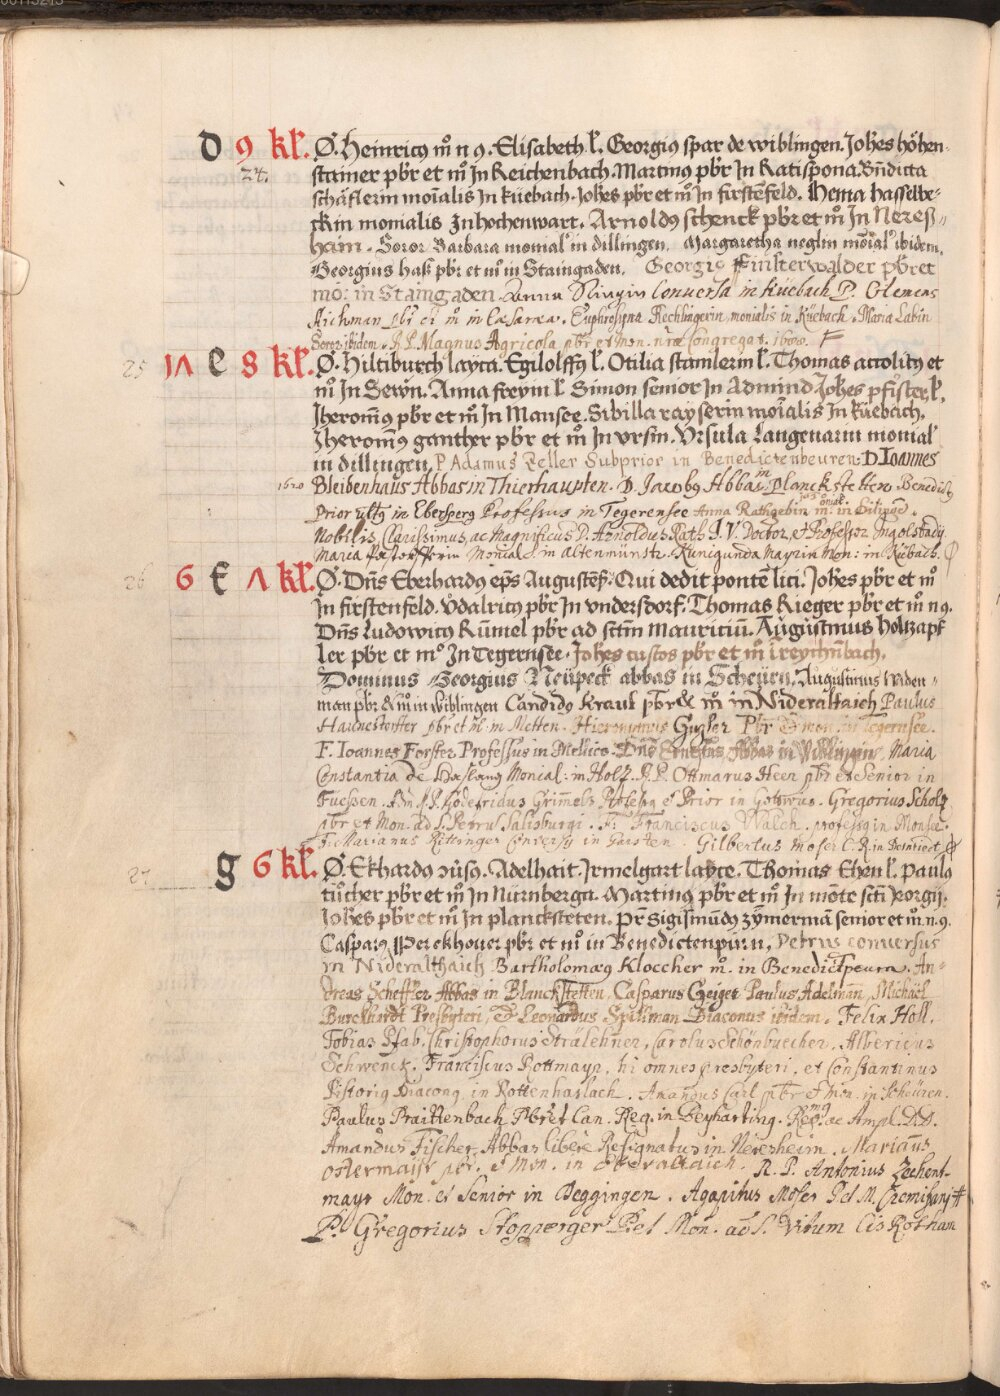 d 9 kł. Ø. Heinricꝰ m̊ n 9. Elisabeth ł. Georgiꝰ spar de wiblingen. Joh̃es höhen-
24. stainer pb̃r et m̊ Jn Reichenbach. Martinꝰ pb̃r Jn Ratispona. Bñdicta
schäflerin moĩalis Jn küebach. Joh̃es pb̃r et m̊ Jn firstẽfeld. Hema hasselbe-
ckin monialis Jnhochenwart. Arnoldꝰ schenck pb̃r et m̊ Jn Nereß-
haim. Soror Barbara monial' in dillingen. Margaretha neglin mõial' ibidem.
Georgius haß pb̃r et m̊ in Staingaden. Georgiꝰ Finsterwalder pb̃r et
mõ: in Staingaden. Anna Conversa in Küebach. P. Clemens
Aichman pb̃r et m̊ in Cæsarea. Euphrosyna Rechlingerin monialis in Küebach. Maria Labin
Soror ibidem. R. P. Magnus Agricola pb̃r et mon. nr̃æ Congregat. 1600.
25 17 e 8 kł. Ø. Hiltiburch layca. Egilolffꝰ ł. Otilia stamlerin ł. Thomas accolitꝰ et
m̊ Jn Sewn. Anna freyin ł. Simon senior Jn Admund. Joh̃es pfister ł.
Jheronim̃ꝰ pb̃r et m̊ Jn Mansee. Sibilla rayserin moĩalis Jn küebach.
Jheronim̃ꝰ ganther pb̃r et m̊ Jn vrsin. Vrsula Langenarin monial'
in dillingen. P Adamus Zeller Subprior in Benedictenbeuren. D. Ioannes
1620 Bleibenhaus Abbas in Thierhaupten. D. Jacobꝰ Abbas in Planckstetten. Benedictꝰ
Prior in Ebersperg Professus in Tegerensee Anna Rathgebin
Nobilis, Clarissimus, ac Magnificus D. Arnoldus Rath I. V. Doctor, et Professor Ingolstadij.
Maria Monial. in altenmünstr. Kunigunda Mayrin Mon: in Kübach.
26 6 f 7 kł. Ø. Dñs Eberhardꝰ ep̃s Augusteñ. Qui dedit pontẽ lici. Joh̃es pb̃r et m̊
Jn firstenfeld. Vdalricꝰ pb̃r Jn vndersdorf. Thomas Rieger pb̃r et m̊ n 9.
Dñs Ludowicꝰ Rũmel pb̃r ad sctm̃ Mauriciũ. Augustinus Holtzapf
ler pb̃r et m̊ Jn Tegernsee. Joh̃es custos pb̃r et m̊ J reychñbach.
Dominus Georgius Neüpeck abbas in Scheürn. Augustinus widen-
man pb̃r & m̊ in wiblingen Candidꝰ Kraul pb̃r & m̊ in Nideraltaich Paulus
Haunestorffer pb̃r et m̊ in Metten. Hieronimus Gugler Pb̃r & mon. in Tegernsee.
F. Ioannes Forster Professus in Mellico. Dñs Ernestus Abbas in Wiblingen. Maria
Constantia de Haslang Monial: in Holz. R. P. Ottmarus Heen pb̃r et Senior in
Fuessen. Godefridus Grimmels Professꝰ et Prior in Gottwic. Gregorius Scholz
pb̃r et Mon. ad S. Petrũ Salisburgi. F. Franciscus Walch. professꝰ in Monsee.
F. Marianus Rittinger Conversꝰ in Garsten. Gilbertus Moser C. R. in
27 g 6 kł. Ø. Ekhardꝰ Adelhait. Jrmelgart layce. Thomas Ehen ł. Paulꝰ
tücher pb̃r et m̊ Jn Nürnberga. Martinꝰ pb̃r et m̊ Jn mõte sctĩ Georgij.
Joh̃es pb̃r et m̊ Jn planckstetten. Pr Sigismũdꝰ zymermã senior et m̊ n. 9.
Casparꝰ Perckhover pb̃r et m̊ in Benedictenpüren. Petrus conversus
in Nideralthaich Bartholomæꝰ Kloecher m̊. in Benedictpeurn. An-
dreas Scheffler Abbas in Blanckstetten, Casparus Geiger Paulus Adelman, Michael
Burckhardt Presbyteri, & Leonardus Spilman Diaconus ibidem. Felix Höll.
Tobias Pfab, Christophorus Stralehner, Carolus Schönbuecher, Albericus
Schwenck. Franciscus Rottmayr, hi omnes presbyteri, et Constantinus
Pistoriꝰ Diaconꝰ in Rottenhaslach. Amandus Carl pb̃r et mon. in Scheüren.
Paulus Praittenbach Pb̃r et Can. Reg. in Beyharting. Rmꝰ ac Ampl. DD.
Amandus Fischer, Abbas liberè Resignatus in Neresheim. Marianus
ostermaijr pbr. et Mon. in Oberaltaich. R. P. Antonius Zechent-
mayr Mon. et Senior in Deggingen. Agapitus Moser P. et M. Cremifanj
P. Gregorius Stopperger P. et Mon. ad S. Vitum Cis Rotham